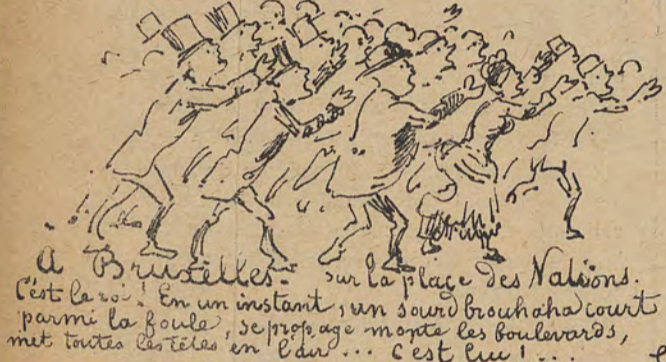 A Bruxelles - sur la place des Nations.
C'est le roi ! En un instant, un sourd brouhaha court
parmi la foule, se propage monte les boulevards,
met toutes les têtes en l'air ... C'est lui ! ...